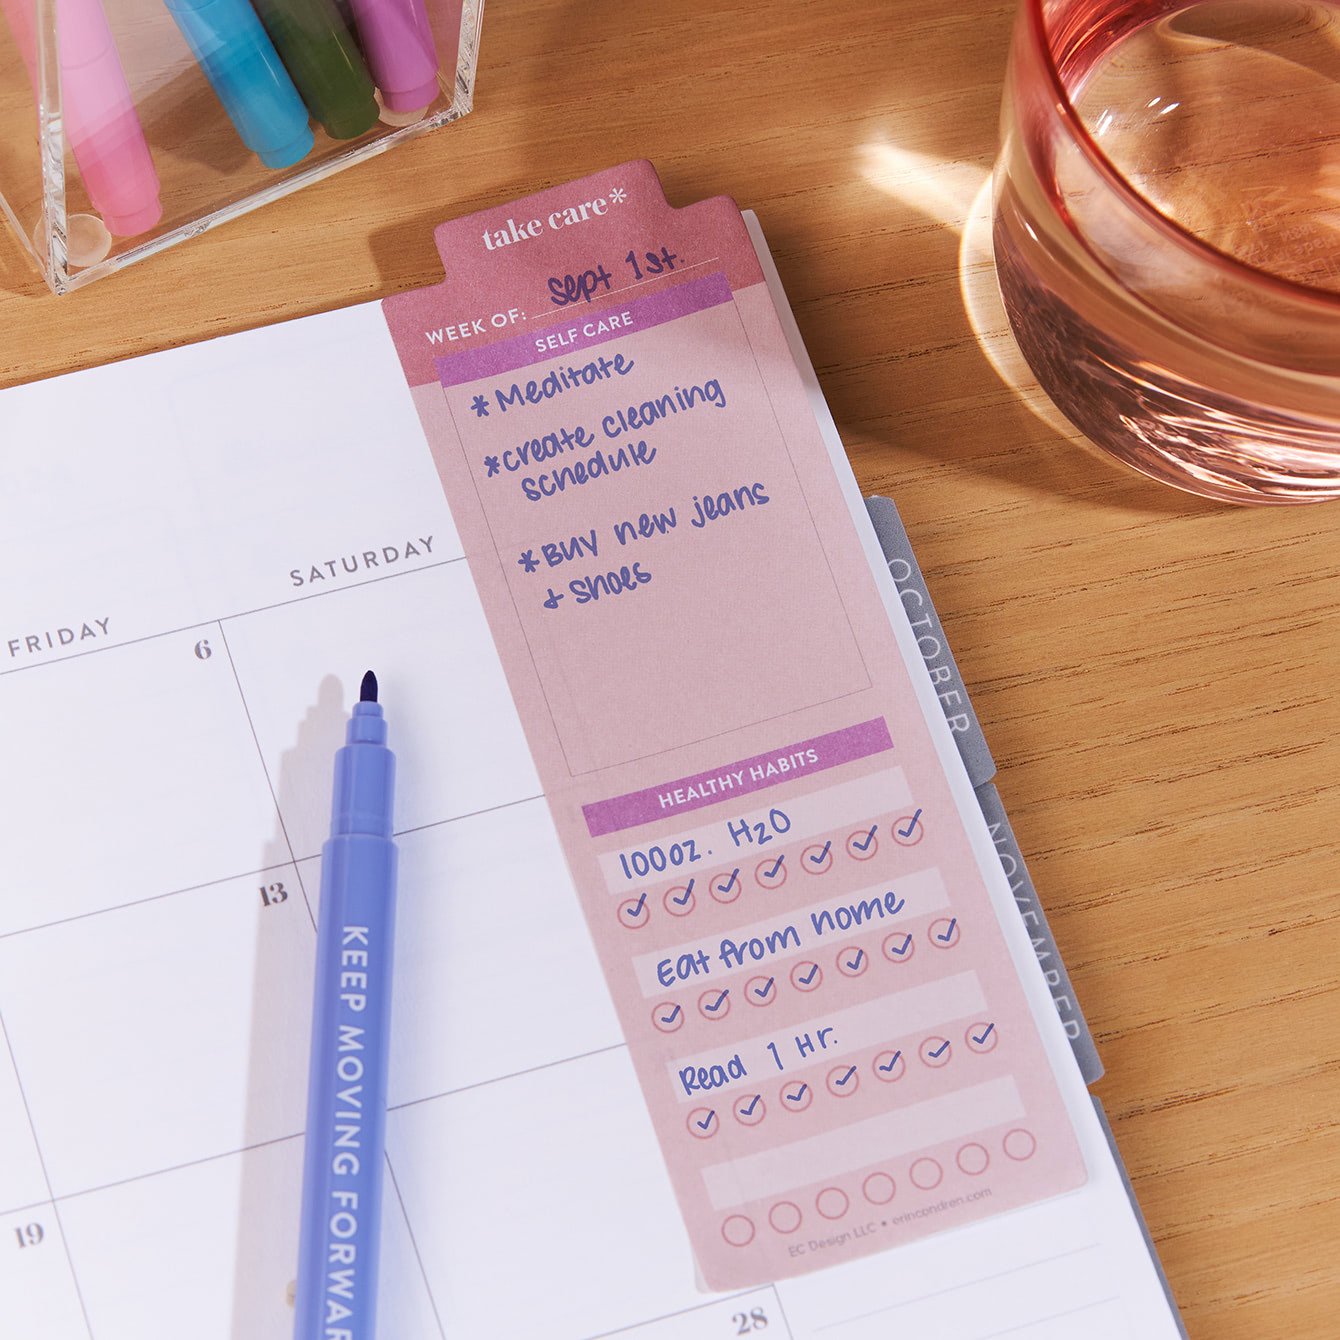 take care*
WEEK OF: Sept 1st.
SELF CARE
* Meditate
* create cleaning
schedule
* Buy new jeans
+ shoes
HEALTHY HABITS
100oz. H2O
Eat from home
Read 1 Hr.
EC Design LLC • erincondren.com
OCTOBER
NOVEMBER
FRIDAY
SATURDAY
6
13
19
28
KEEP MOVING FORWAR